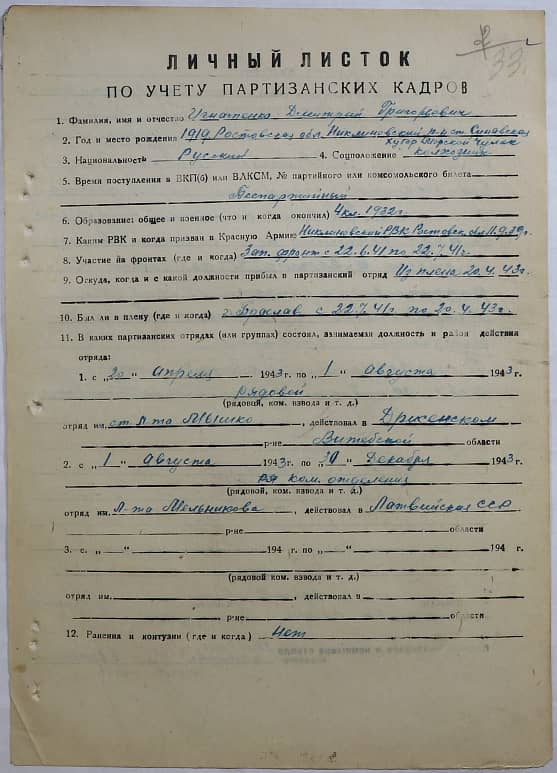 33.
ЛИЧНЫЙ ЛИСТОК
ПО УЧЕТУ ПАРТИЗАНСКИХ КАДРОВ
1. Фамилия, имя и отчество Игнатенко Дмитрий Григорьевич
2. Год и место рождения 1919, Ростовская обл. Никлиновский р-н ст. Синявская
хутор Морской Чулек
3. Национальность Русский 4. Соцположение колхозник
5. Время поступления в ВКП(б) или ВЛКСМ, № партийного или комсомольского билета
Беспартийный
6. Образование: общее и военное (что и когда окончил) 4 кл. 1932 г.
7. Каким РВК и когда призван в Красную Армию Никлиновский РВК Ростовск. обл. 11.9.39 г.
8. Участие на фронтах (где и когда) Зап. фронт с 22.6.41 по 22.7.41 г.
9. Оскуда, когда и с какой должности прибыл в партизанский отряд Из плена 20.4.43 г.
10. Был ли в плену (где и когда) г. Браслав с 22.7.41 г. по 20.4.43 г.
11. В каких партизанских отрядах (или группах) состоял, занимаемая должность и район действия
отряда:
1. с „20" апреля 1943 г. по „1" августа 1943 г.
рядовой
(рядовой, ком. взвода и т. д.)
отряд им. ст. л-та Мышко, действовал в Дрисенском
р-не Витебской области
2. с „1" августа 1943 г. по „30" декабря 1943 г.
ком. отделения
(рядовой, ком. взвода и т. д.)
отряд им. л-та Мельникова, действовал в Латвийская ССР
р-не области
3. с „ " 194 г. по „ " 194 г.
(рядовой, ком. взвода и т. д.)
отряд им. , действовал в
р-не области
12. Ранения и контузии (где и когда) Нет